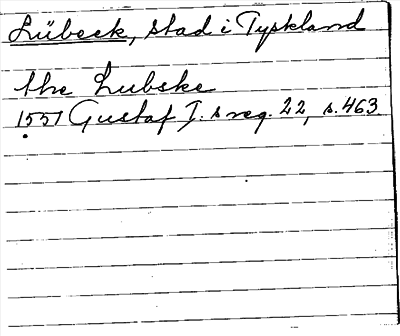 Lübeck, stad i Tyskland
the Lubske
1551 Gustaf I:s reg. 22, s. 463